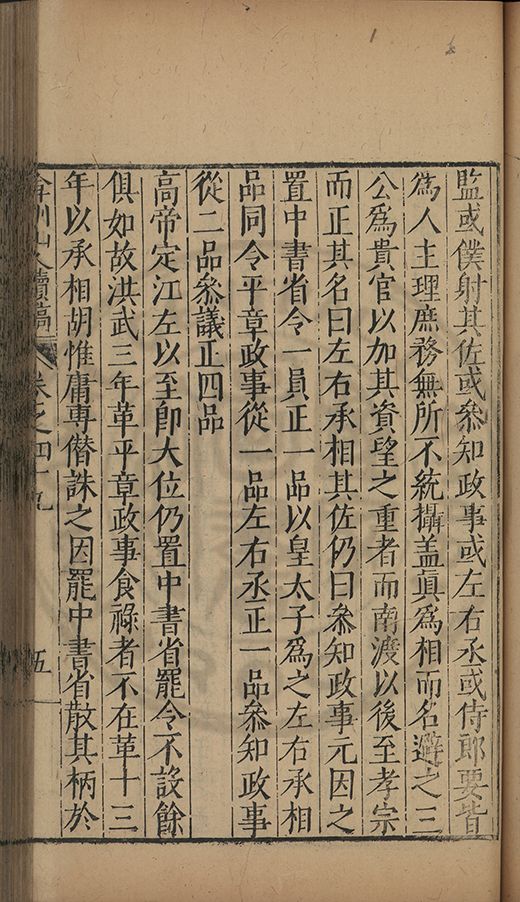 監或僕射其佐或叅知政事或左右丞或侍郎要皆
為人主理庶務無所不統攝盖眞爲相而名避之三
公爲貴官以加其資望之重者而南渡以後至孝宗
而正其名曰左右丞相其佐仍曰叅知政事元因之
置中書省令一員正一品以皇太子爲之左右承相
品同令平章政事從一品左右丞正一品叅知政事
從二品叅議正四品
高帝定江左以至卽大位仍置中書省罷令不設餘
俱如故洪武三年革平章政事食祿者不在革十三
年以承相胡惟庸専僣誅之因罷中書省散其柄於
弇州山人續稿 卷之四十九 五